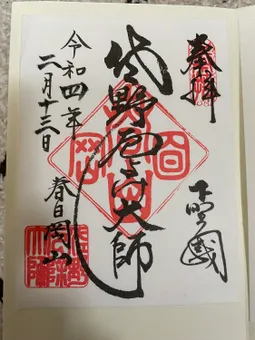 奉拝
下野國
佐野厄よけ大師
令和四年
二月十三日
春日岡山